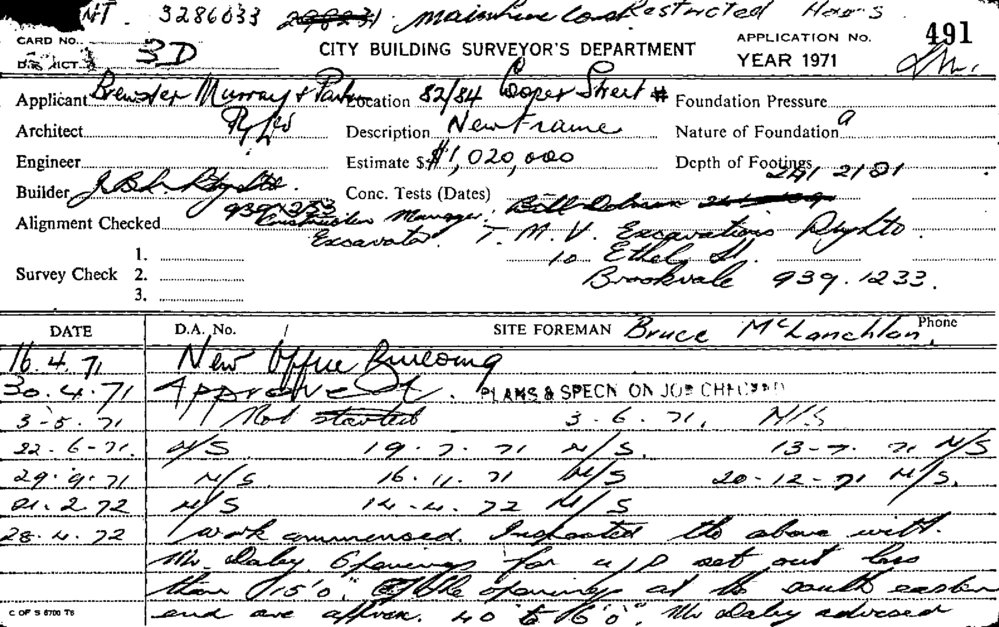 NT. 3286033 298231 mainline Restricted Hours
CARD No. CITY BUILDING SURVEYOR'S DEPARTMENT APPLICATION No. 491
DISTRICT 3D YEAR 1971
Applicant Brewster Murray & Partners Location 82/84 Cooper Street # Foundation Pressure
Architect Pty Ltd Description New Frame Nature of Foundation
Engineer Estimate $ $1,020,000 Depth of Footings
Builder Pty Ltd. Conc. Tests (Dates) 241 2181
Alignment Checked 939 253 Construction Manager. Bill
Excavator. T. M. V. Excavations Pty Ltd.
1. 10 Ethel St.
Survey Check 2. Brookvale 939. 1233.
3.
DATE D.A. No. SITE FOREMAN Bruce McLanchlan. Phone
16.4.71 New Office Building
30.4.71 Approved. PLANS & SPECN ON JOB CHECKED
3-5.71 Not started 3.6.71. N/S
22-6-71. N/S 19.7.71 N/S 13-7.71 N/S
29.9.71 N/S 16.11.71 N/S 20-12-71 N/S.
01.2.72 N/S 14-4.72 N/S
28.4.72 Work commenced. Inspected the above with
Mr. Daley Openings for u/p set out less
than 15'0". The openings at the south eastern
end are approx. 40 to 60". Mr Daley advised
C OF S 6700 T6